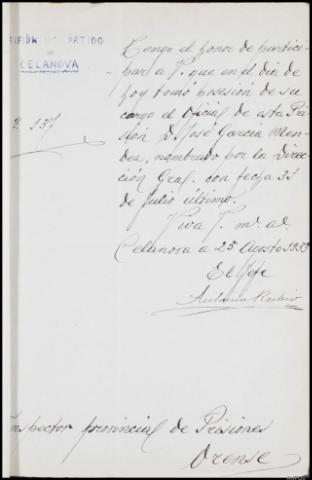 PRISIÓN DEL PARTIDO
DE
CELANOVA
Tengo el honor de partici-
par a V. que en el dia de
hoy tomó posesión de su
cargo el Oficial de esta Pri-
sión D. José Garcia Men-
dez, nombrado por la Direc-
ción Gral. con fecha 31
de Julio último.
Viva V. m. a.
Celanova a 25 Agosto 1933
El Jefe
Antonio Rubio
Inspector provincial de Prisiones
Orense